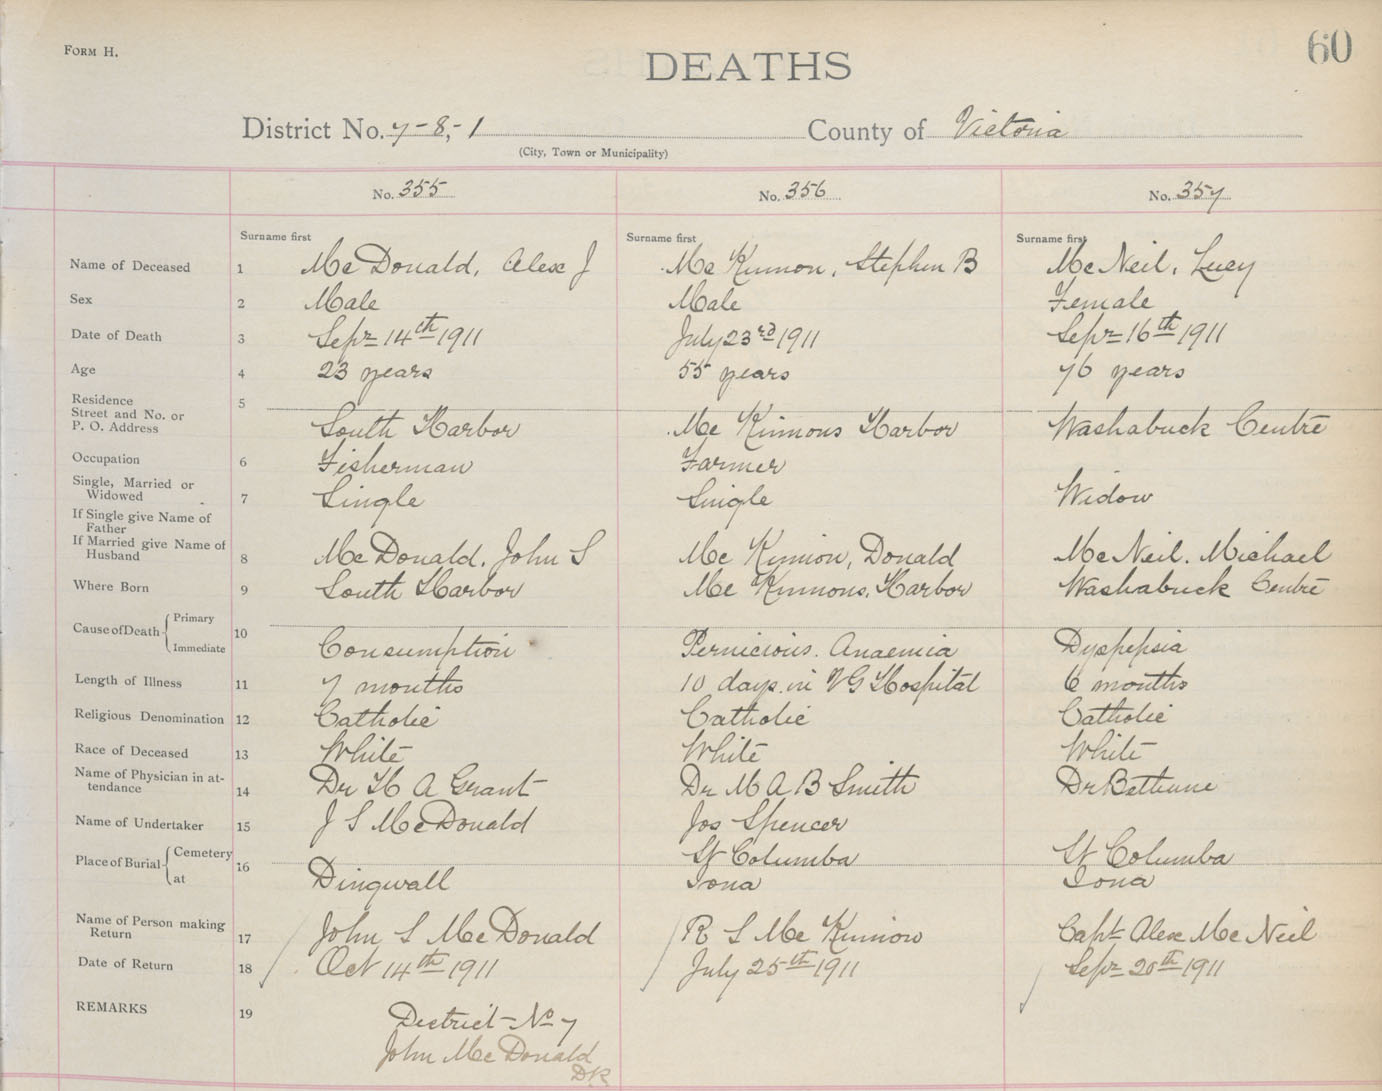 FORM H.
60
DEATHS
District No. 7-8,-1 County of Victoria
(City, Town or Municipality)
No. 355 No. 356 No. 357
Surname first Surname first Surname first
Name of Deceased 1 McDonald, Alex J McKinnon, Stephen B McNeil, Lucy
Sex 2 Male Male Female
Date of Death 3 Sepr 14th 1911 July 23rd 1911 Sepr 16th 1911
Age 4 23 years 55 years 76 years
Residence 5
Street and No. or
P. O. Address South Harbor McKinnons Harbor Washabuck Centre
Occupation 6 Fisherman Farmer
Single, Married or
Widowed 7 Single Single Widow
If Single give Name of
Father
If Married give Name of
Husband 8 McDonald, John S McKinnon, Donald McNeil. Michael
Where Born 9 South Harbor McKinnons, Harbor Washabuck Centre
Cause of Death { Primary
Immediate 10 Consumption Pernicious. Anaemia Dyspepsia
Length of Illness 11 7 months 10 days in VG Hospital 6 months
Religious Denomination 12 Catholic Catholic Catholic
Race of Deceased 13 White White White
Name of Physician in at-
tendance 14 Dr H A Grant Dr M A B Smith Dr Bethune
Name of Undertaker 15 J S McDonald Jos Spencer
Place of Burial { Cemetery 16 St Columba St Columba
at Dingwall Iona Iona
Name of Person making
Return 17 John S McDonald R S McKinnon Capt Alex McNeil
Date of Return 18 Oct 14th 1911 July 25th 1911 Sepr 20th 1911
REMARKS 19 District No 7
John McDonald
D.R.